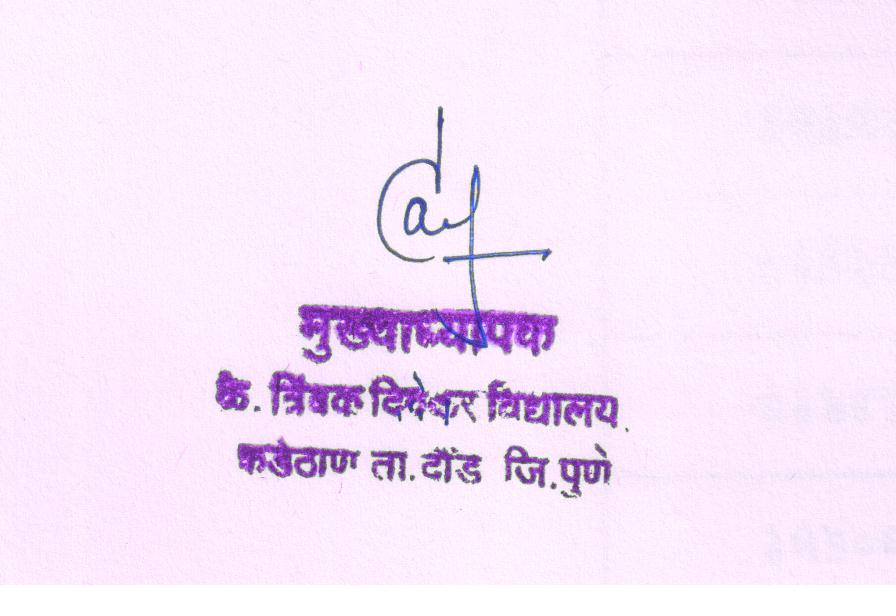 मुख्याध्यापक
कै. त्रिंबक दिवेकर विद्यालय.
कडेठाण ता.दौंड जि.पुणे